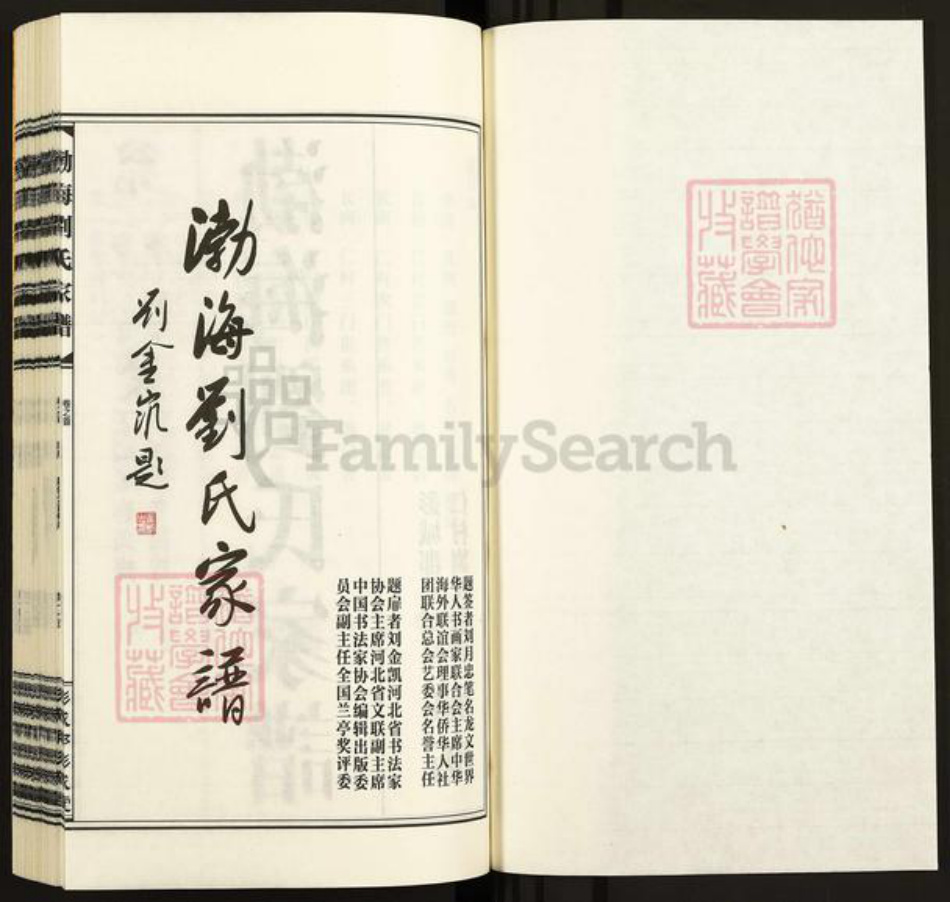 猶他家
譜學會
收藏
题签者刘月忠笔名龙文世界
华人书画家联合会主席中华
海外联谊会理事华侨华人社
团联合总会艺委会名誉主任
题扉者刘金凯河北省书法家
协会主席河北省文联副主席
中国书法家协会编辑出版委
员会副主任全国兰亭奖评委
渤海劉氏家譜
刘金凯题
猶他家
譜學會
收藏
渤海刘氏家譜
卷之首
FamilySearch